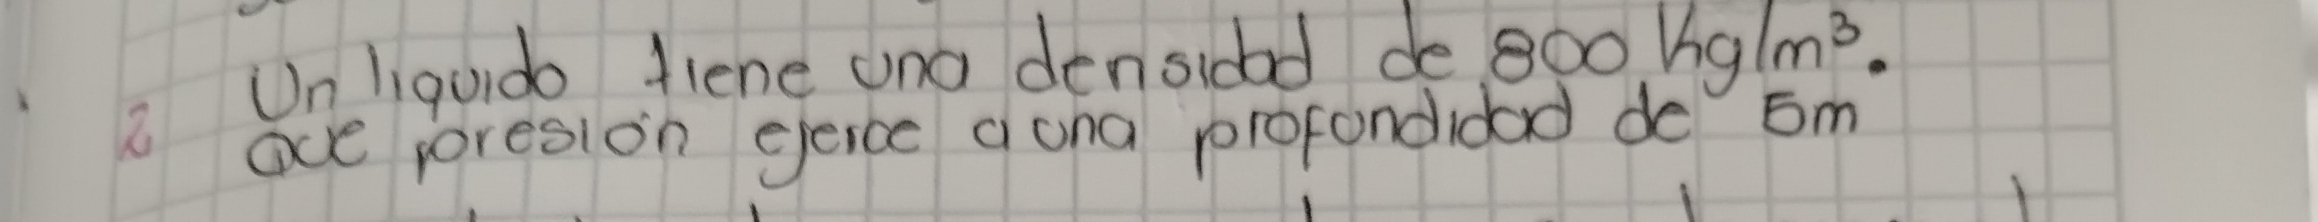 Un liquido tiene una densidad de 800 Kg/m³.
2 Que presión ejerce a una profundidad de 5m